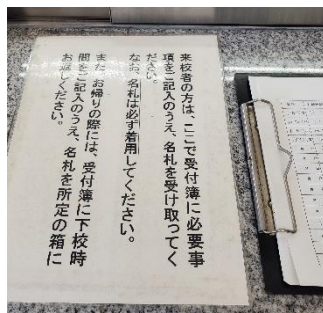 来校者の方は、ここで受付簿に必要事
項をご記入のうえ、名札を受け取ってく
ださい。
なお、名札は必ず着用してください。
また、お帰りの際には、受付簿に下校時
間をご記入のうえ、名札を所定の箱に
お返しください。